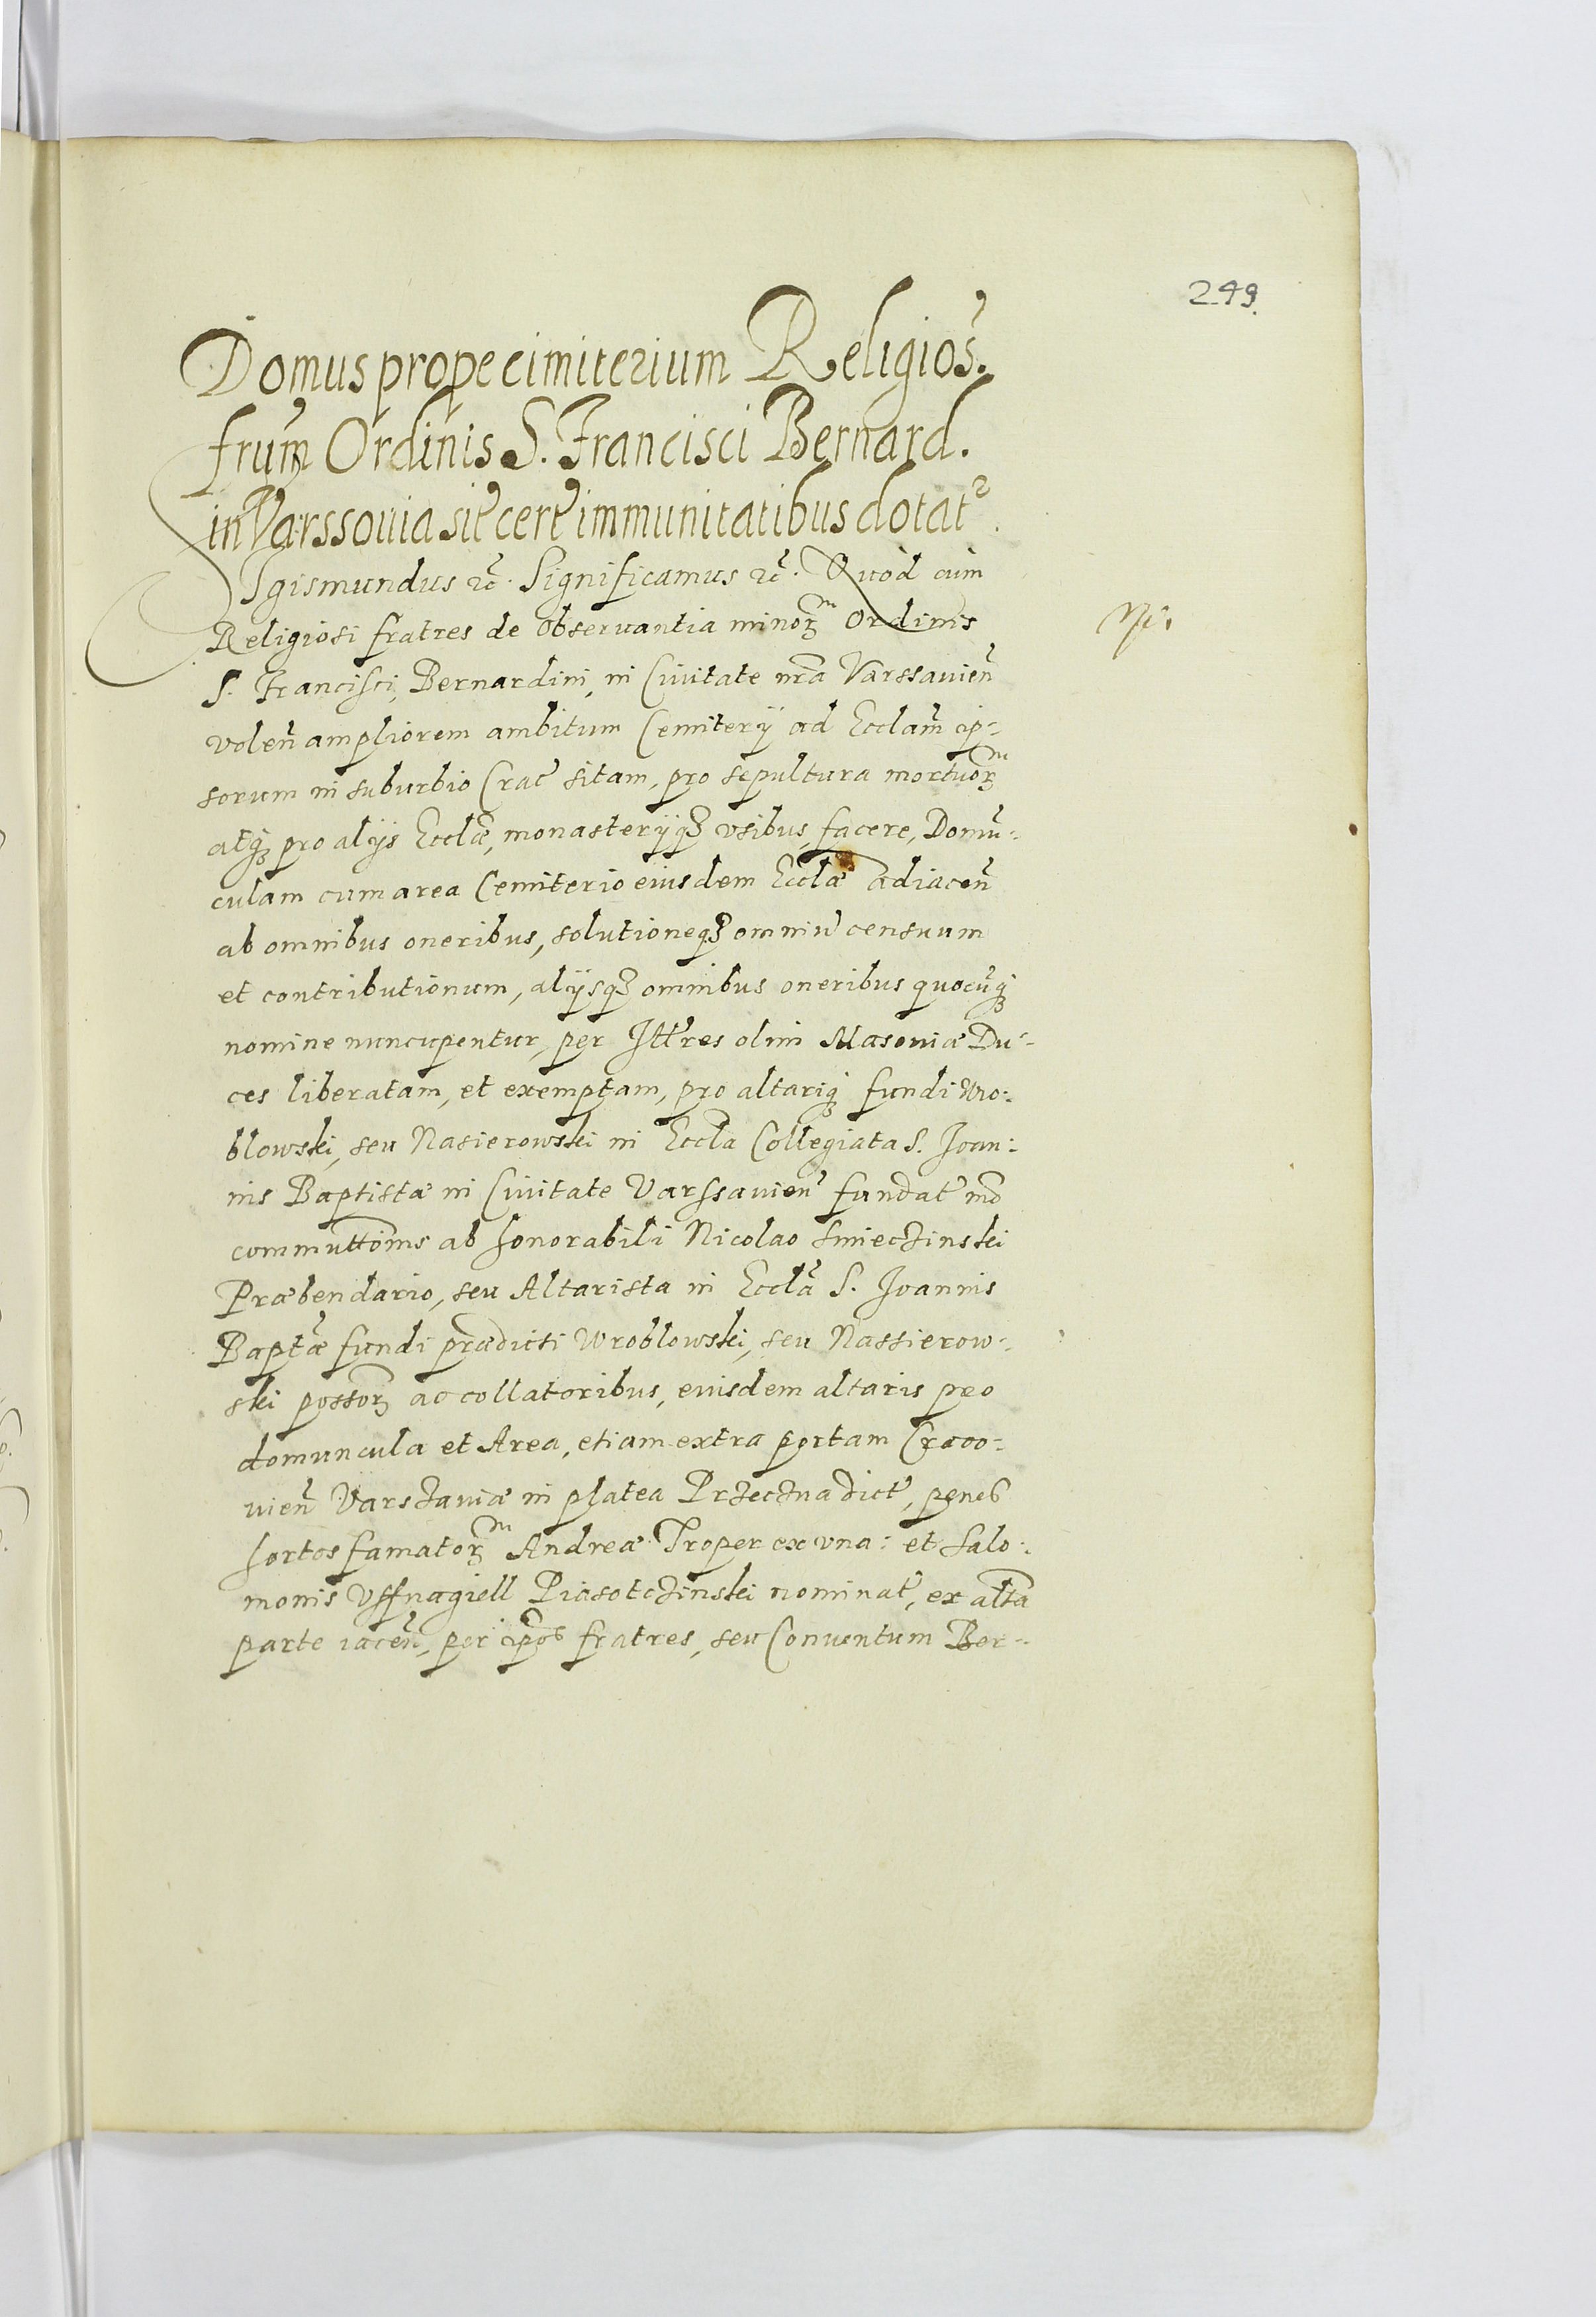 249.
Domus prope cimiterium Religios.
frum Ordinis S. Francisci Bernard.
in Varssouia sit cert immunitatibus dotat.
Sigismundus etc. Significamus etc. Quod cum
Religiosi fratres de obseruantia minorum Ordinis
S. Francisci, Bernardini, in Ciuitate nra Varssauien
volen ampliorem ambitum Cemiterÿ ad Ecclam ip-
sorum in suburbio Crac sitam, pro sepultura mortuorum
atq pro alÿs Ecclæ, monasterÿq vsibus, facere, Domu-
culam cum area Cemiterio eiusdem Ecclæ adiacen
ab omnibus oneribus, solutioneq omniu censuum
et contributionum, alÿsq omnibus oneribus quocuq
nomine nuncupentur, per Illres olim Masouiæ Du-
ces liberatam, et exemptam, pro altariq fundi Wro-
blowski, seu Nasierowski in Eccla Collegiata S. Ioan-
nis Baptistæ in Ciuitate Varssauien fundat mo
commuttonis ab honorabili Nicolao Smieczinski
Præbendario, seu Altarista in Eccla S. Ioannis
Baptæ fundi prædicti Wroblowski, seu Nassierow-
ski possor ac collatoribus, eiusdem altaris pro
domuncula et Area, etiam extra portam Craco-
uien Varszauiæ in platea Przeczna dict, penes
hortos famatorum Andreæ Troper ex vna: et Salo-
monis Vffnagiell Piasotczinski nominat, ex altra
parte iacen, per ipos fratres, seu Conuentum Ber-